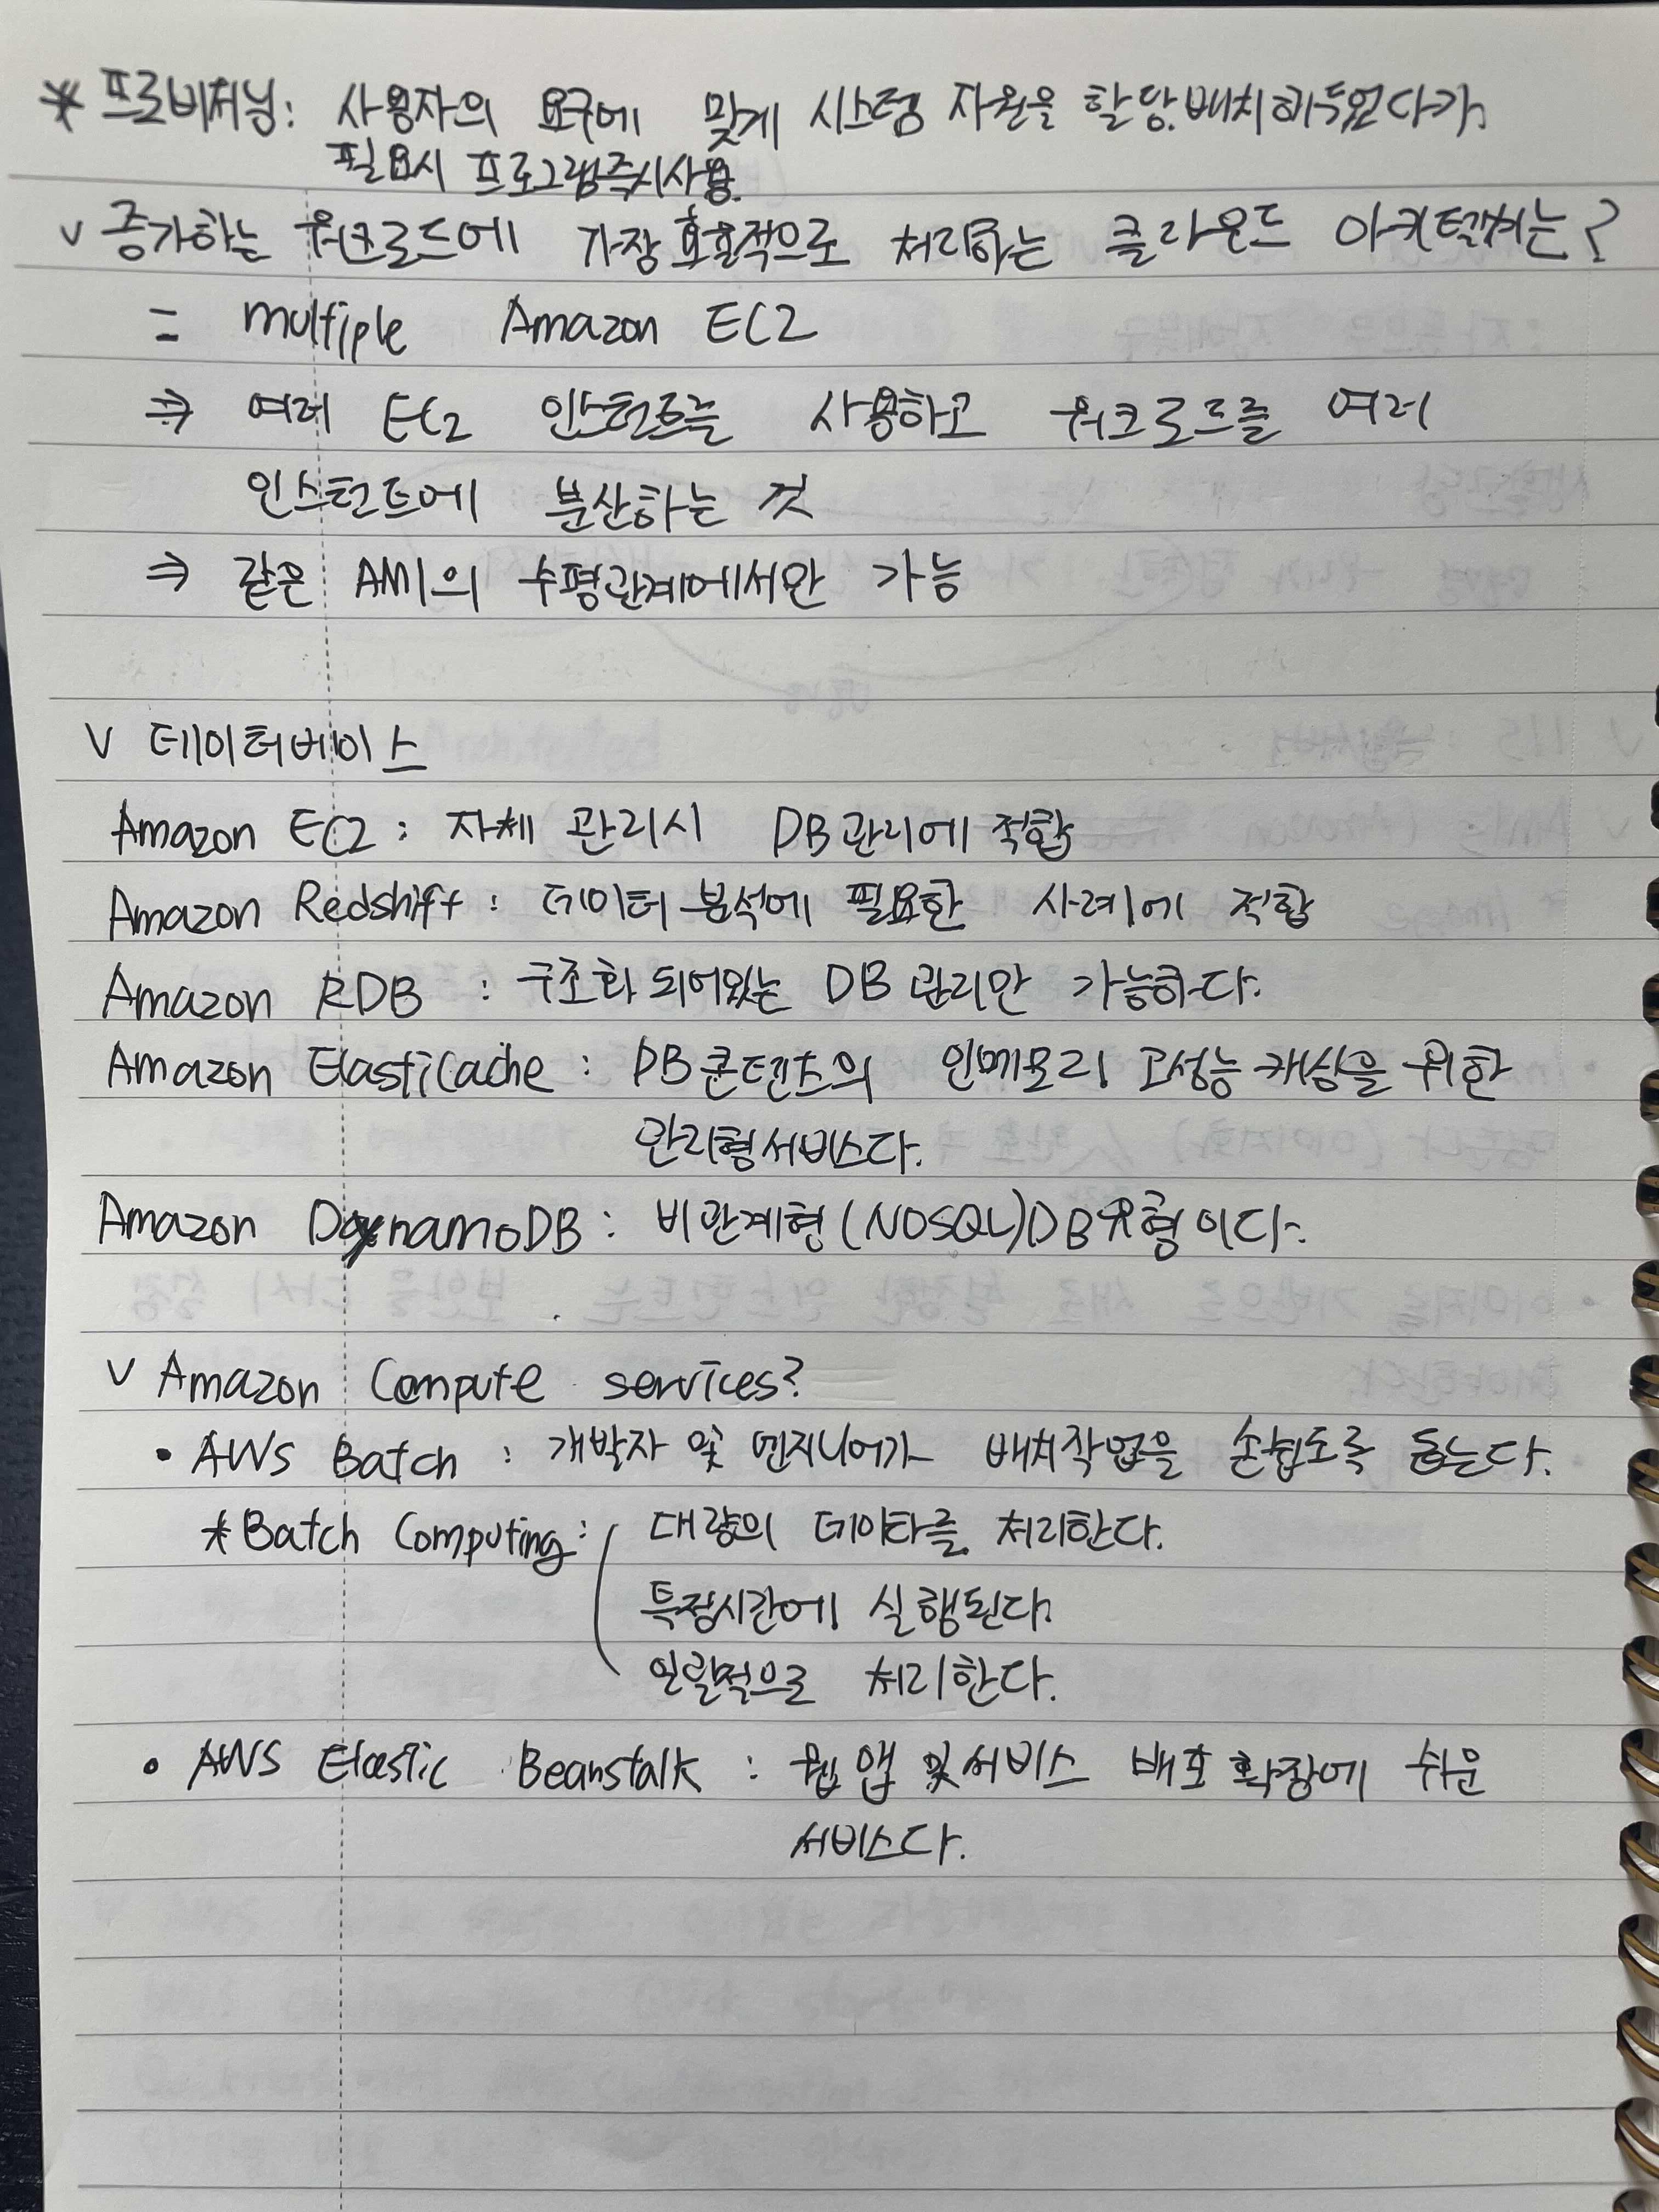 * 프로비저닝: 사용자의 요구에 맞게 시스템 자원을 할당.배치해두었다가.
필요시 프로그램즉시사용.
v 증가하는 워크로드에 가장 효율적으로 처리하는 클라운드 아키텍쳐는?
= multiple Amazon EC2
⇒ 여러 EC2 인스턴트를 사용하고 워크로드를 여러
인스턴트에 분산하는 것
⇒ 같은 AMI의 수평관계에서만 가능
v 데이터베이스
Amazon EC2 : 자체 관리시 DB관리에 적합
Amazon Redshift : 데이터 분석에 필요한 사례에 적합
Amazon RDB : 구조화 되어있는 DB 관리만 가능하다.
Amazon ElastiCache : DB콘텐츠의 인메모리 고성능 캐싱을 위한
관리형서비스다.
Amazon DynamoDB : 비관계형(NOSQL)DB유형이다.
v Amazon Compute services?
• AWS Batch : 개발자 및 엔지니어가 배치작업을 손쉽도록 돕는다.
*Batch Computing: 대량의 데이타를 처리한다.
특정시간에 실행된다.
일괄적으로 처리한다.
• AWS Elastic Beanstalk : 웹 앱 및 서비스 배포 확장에 쉬운
서비스다.